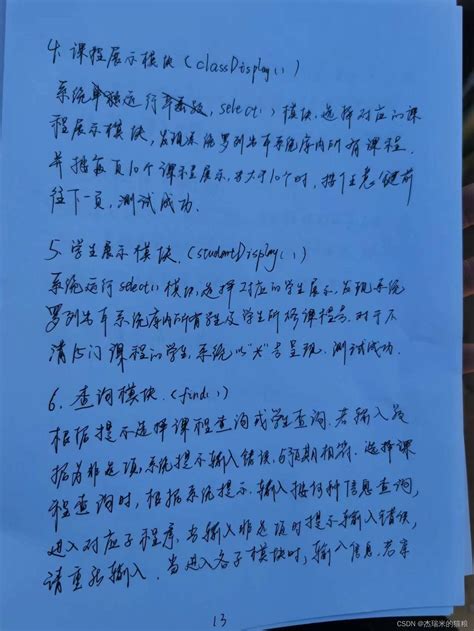 4. 课程展示模块 (classDisplay())
系统单独运行主函数, select() 模块, 选择对应的课
程展示模块, 发现系统罗列出系统库内所有课程.
并按每页10个课程展示, 当大于10个时, 按任意键前
往下一页, 测试成功.
5. 学生展示模块. (studentDisplay())
系统运行select()模块, 选择对应的学生展示, 发现系统
罗列出系统库内所有学生及学生所修课程号. 对于不
满15门课程的学生, 系统以"x"号呈现. 测试成功.
6. 查询模块. (find())
根据提示选择课程查询或学生查询. 若输入数
据为非选项, 系统提示输入错误, 与预期相符. 选择课
程查询时, 根据系统提示, 输入按何种信息查询,
进入对应子程序. 当输入非选项时提示输入错误,
请重新输入. 当进入各子模块时, 输入信息, 若
13
CSDN @杰瑞米的猫粮